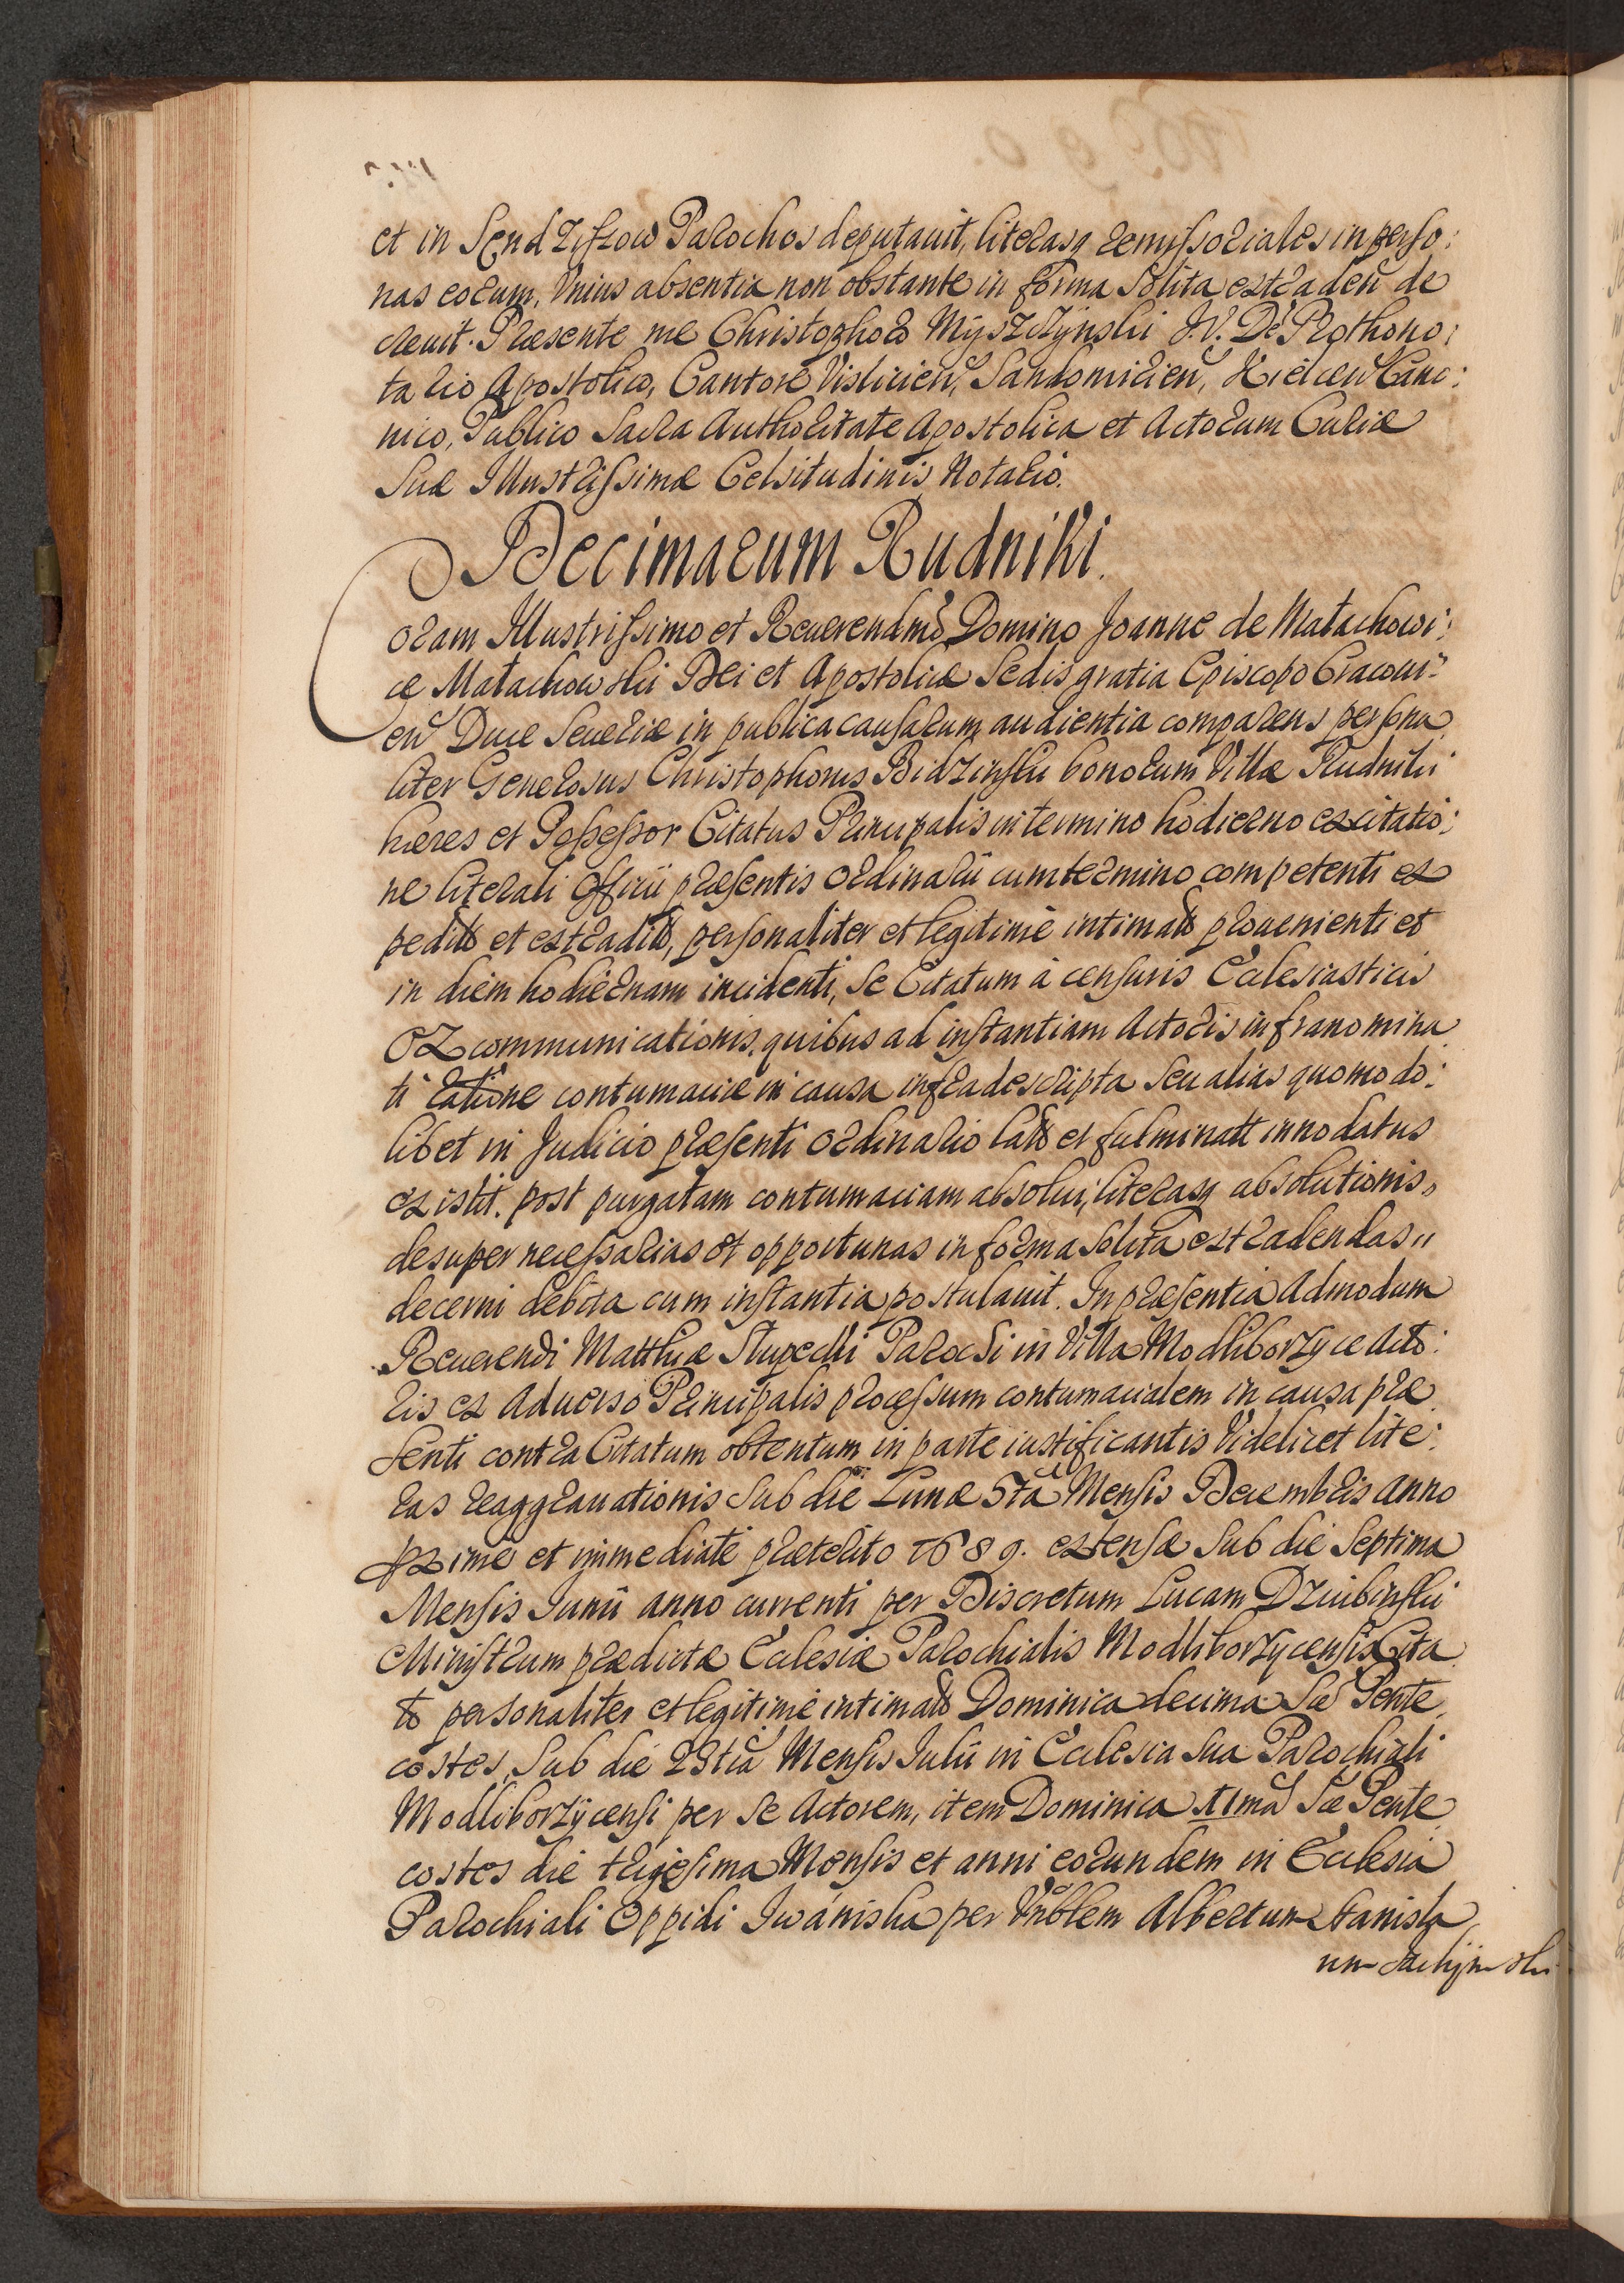 et in Sendziszow Parochos deputauit, literasq remissoriales in perso:
nas eorum, Vnius absentia non obstante in forma solita extraden̄ de
creuit. Præsente me Christophoro Myszczynski J. V. D. Prothono:
tario Apostolico, Cantore Vislicien̄, Sandomirien̄, Kielcen̄ Cano:
nico, Publico Sacra Authoritate Apostolica et Actorum Curiæ
Suæ Illustrissimæ Celsitudinis Notario.
Decimarum Rudniki.
Coram Illustrissimo et Reuerendmō Domino Joanne de Małachowi:
ce Małachowski Dei et Apostolicæ Sedis gratia Episcopo Cracoui:
en̄ Duce Seueriæ in publica causarum audientia comparens persona
liter Generosus Christophorus Bidzinski bonorum Villæ Rudniki
hæres et Possessor Citatus Principalis in termino hodierno ex citatio:
ne literali Officii præsentis Ordinarii cum termino competenti ex
pedito et extradito, personaliter et legitimè intimato prouenienti et
in diem hodiernam incidenti, Se Citatum à censuris Ecclesiasticis
Excommunicationis, quibus ad instantiam Actoris infranomina
ti ratione contumaciæ in causa infradescripta seu alias quomodo:
libet in Judicio præsenti Ordinario latis et fulminatt innodatus
existit. post purgatam contumaciam absolui, literasq absolutionis
desuper necessarias et opportunas in forma solita extradendas
decerni debita cum instantia postulauit. In præsentia Admodum
Reuerendi Matthiæ Słupecki Parochi in Villa Modliborzyce Acto:
ris ex aduerso Principalis processum contumacialem in causa præ
senti contra Citatum obtentum in parte iustificantis Videlicet lite:
ras reaggrauationis sub die Lunæ 5tā Mensis Decembris anno
pxime et immediate præterito 1689. extensæ sub die septima
Mensis Junii anno currenti per Discretum Lucam Dziubinski
Ministrum prædictæ Ecclesiæ Parochialis Modliborzycensis Cita
to personaliter et legitimè intimato Dominica decima Sæ Pente
costes, sub die 23tiā Mensis Julii in Ecclesia sua Parochiali
Modliborzycensi per se Actorem, item Dominica XImā Sæ Pente
costes die trigesima Mensis et anni eorundem in Ecclesia
Parochiali Oppidi Iwaniska per Vnblem Albertum Stanisła
um